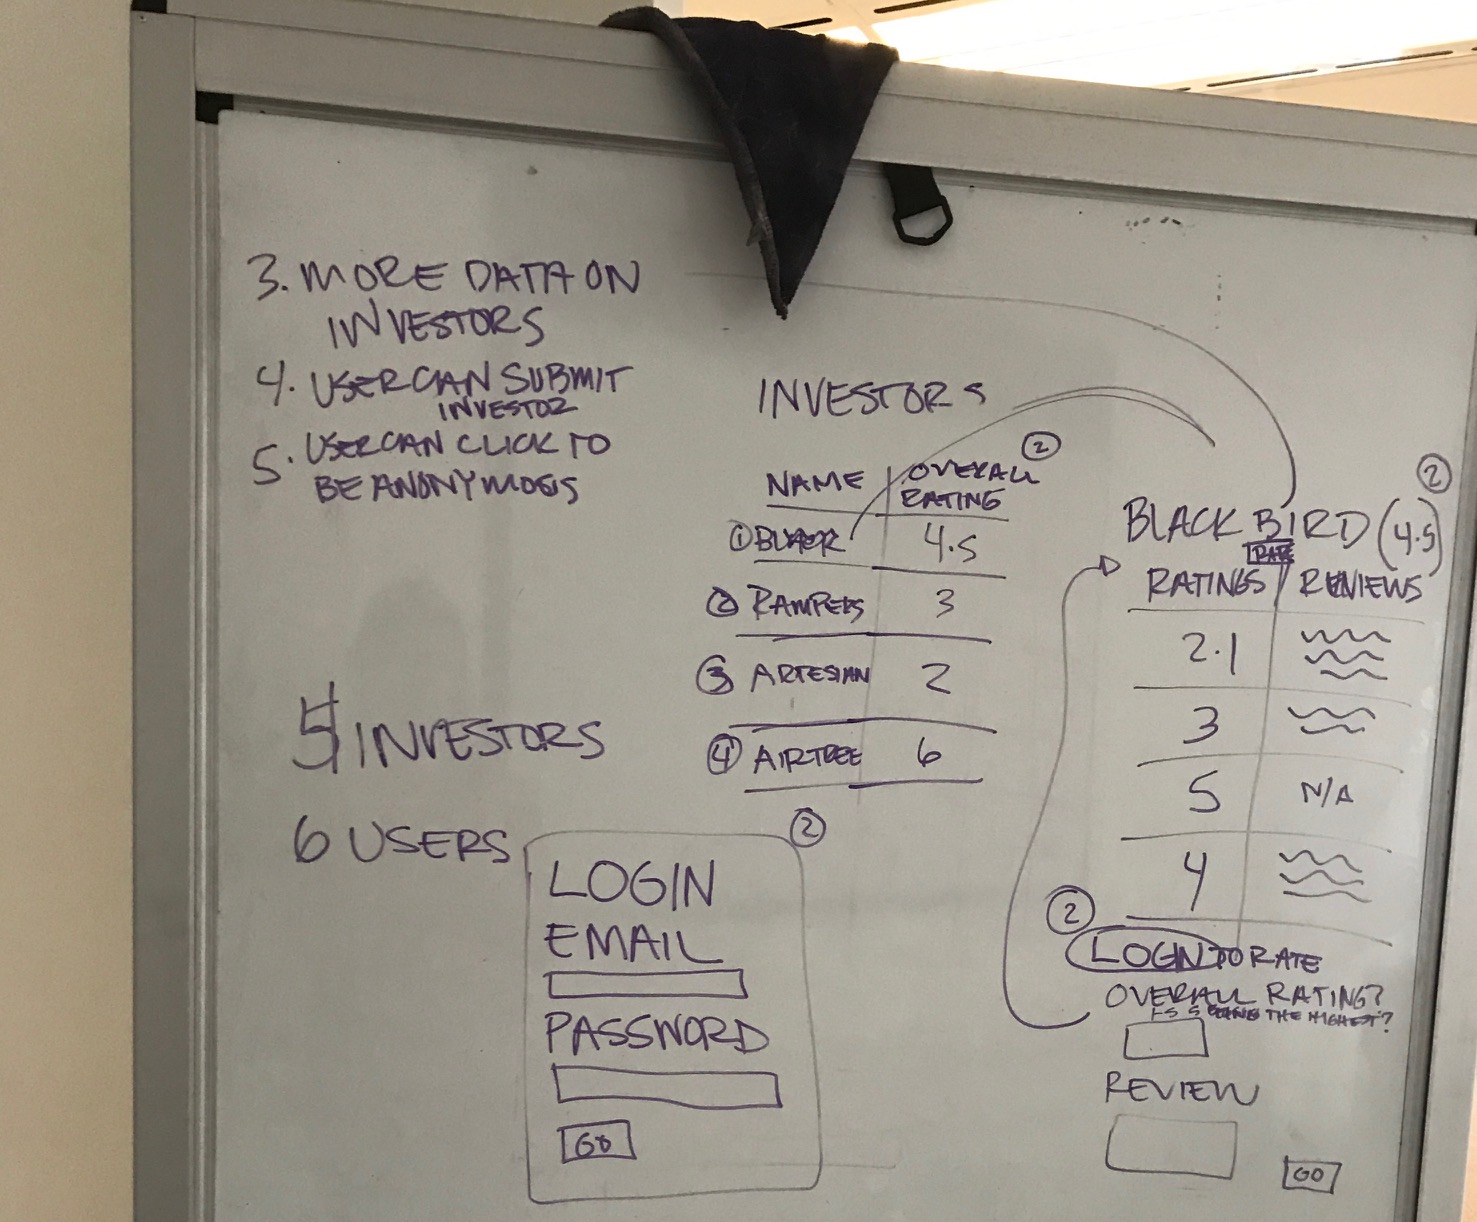 3. MORE DATA ON
INVESTORS
4. USER CAN SUBMIT
INVESTOR
5. USER CAN CLICK TO
BE ANONYMOUS
5 INVESTORS
6 USERS
INVESTORS
NAME OVERALL RATING 2
1 4.5
2 3
3 ARTESIAN 2
4 AIRTREE 6
2
LOGIN
EMAIL
PASSWORD
GO
2
BLACK BIRD (4.5)
RATE
RATINGS REVIEWS
2.1
3
5 N/A
4
2
LOGIN TO RATE
OVERALL RATING?
5 BEING THE HIGHEST?
REVIEW
GO